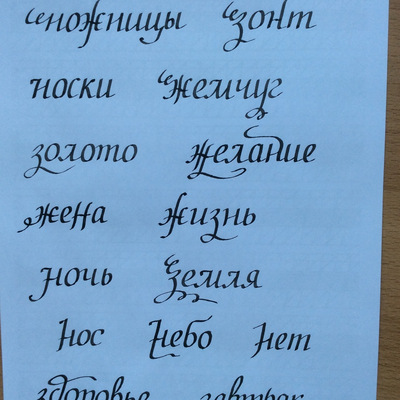 ножницы зонт
носки жемчуг
золото желание
жена жизнь
ночь земля
нос небо нет
здоровье завтрак